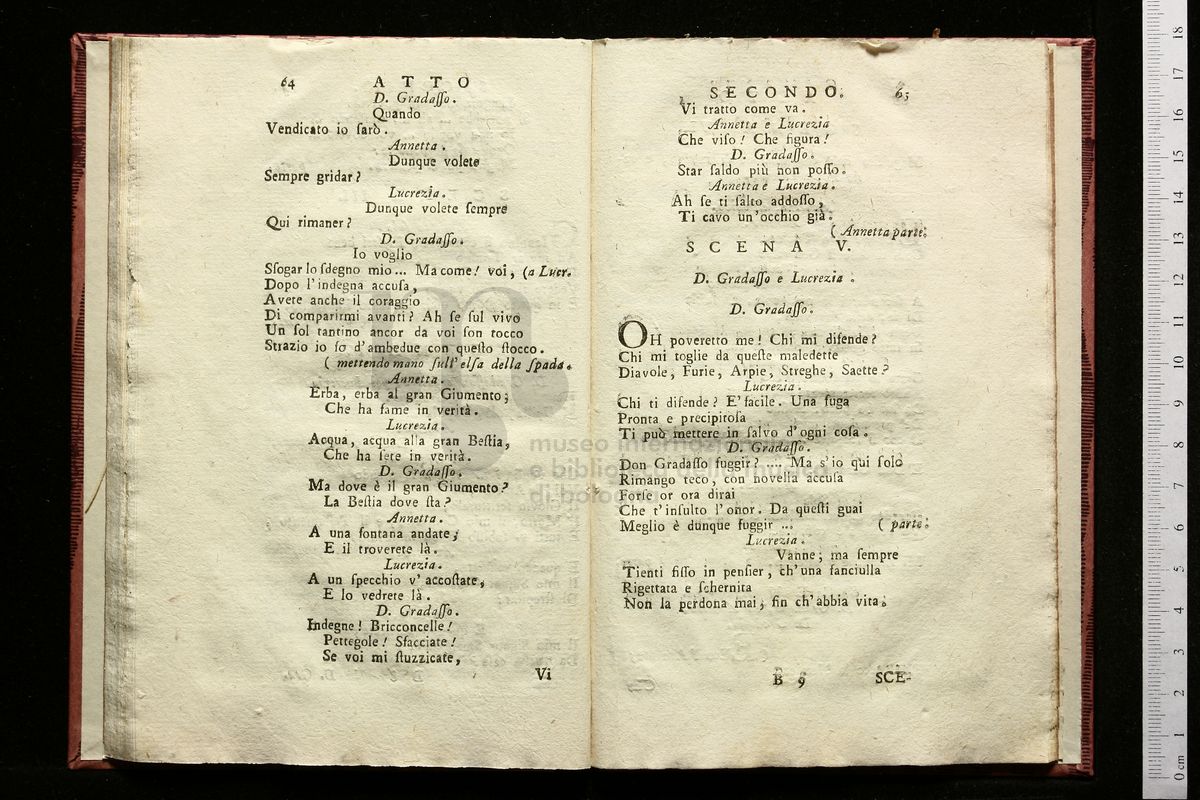 64 ATTO
D. Gradaſſo.
Quando
Vendicato io ſarò.
Annetta.
Dunque volete
Sempre gridar?
Lucrezia.
Dunque volete ſempre
Qui rimaner?
D. Gradaſſo.
Io voglio
Sfogar lo ſdegno mio... Ma come! voi, (a Lucr.
Dopo l'indegna accuſa,
Avete anche il coraggio
Di comparirmi avanti? Ah ſe ſul vivo
Un ſol tantino ancor da voi ſon tocco
Strazio io fo d'ambedue con queſto ſtocco.
( mettendo mano ſull'elſa della ſpada.
Annetta.
Erba, erba al gran Giumento;
Che ha fame in verità.
Lucrezia.
Acqua, acqua alla gran Beſtia,
Che ha ſete in verità.
D. Gradaſſo.
Ma dove è il gran Giumento?
La Beſtia dove ſta?
Annetta.
A una fontana andate;
E il troverete là.
Lucrezia.
A un ſpecchio v'accoſtate,
E lo vedrete là.
D. Gradaſſo.
Indegne! Bricconcelle!
Pettegole! Sfacciate!
Se voi mi ſtuzzicate,
Vi
SECONDO. 65
Vi tratto come va.
Annetta e Lucrezia
Che viſo! Che figura!
D. Gradaſſo.
Star ſaldo più non poſſo.
Annetta e Lucrezia.
Ah ſe ti ſalto addoſſo,
Ti cavo un'occhio già.
( Annetta parte.
SCENA V.
D. Gradaſſo e Lucrezia.
D. Gradaſſo.
OH poveretto me! Chi mi difende?
Chi mi toglie da queſte maledette
Diavole, Furie, Arpie, Streghe, Saette?
Lucrezia.
Chi ti difende? E' facile. Una fuga
Pronta e precipitoſa
Ti può mettere in ſalvo d'ogni coſa.
D. Gradaſſo.
Don Gradaſſo fuggir? ... Ma s'io qui ſolo
Rimango teco, con novella accuſa
Forſe or ora dirai
Che t'inſulto l'onor. Da queſti guai
Meglio è dunque fuggir ... ( parte.
Lucrezia.
Vanne; ma ſempre
Tienti fiſſo in penſier, ch'una fanciulla
Rigettata e ſchernita
Non la perdona mai, fin ch'abbia vita.
B 9 SCE-
museo internazionale
e biblioteca della musica
di bologna
0 cm 1 2 3 4 5 6 7 8 9 10 11 12 13 14 15 16 17 18